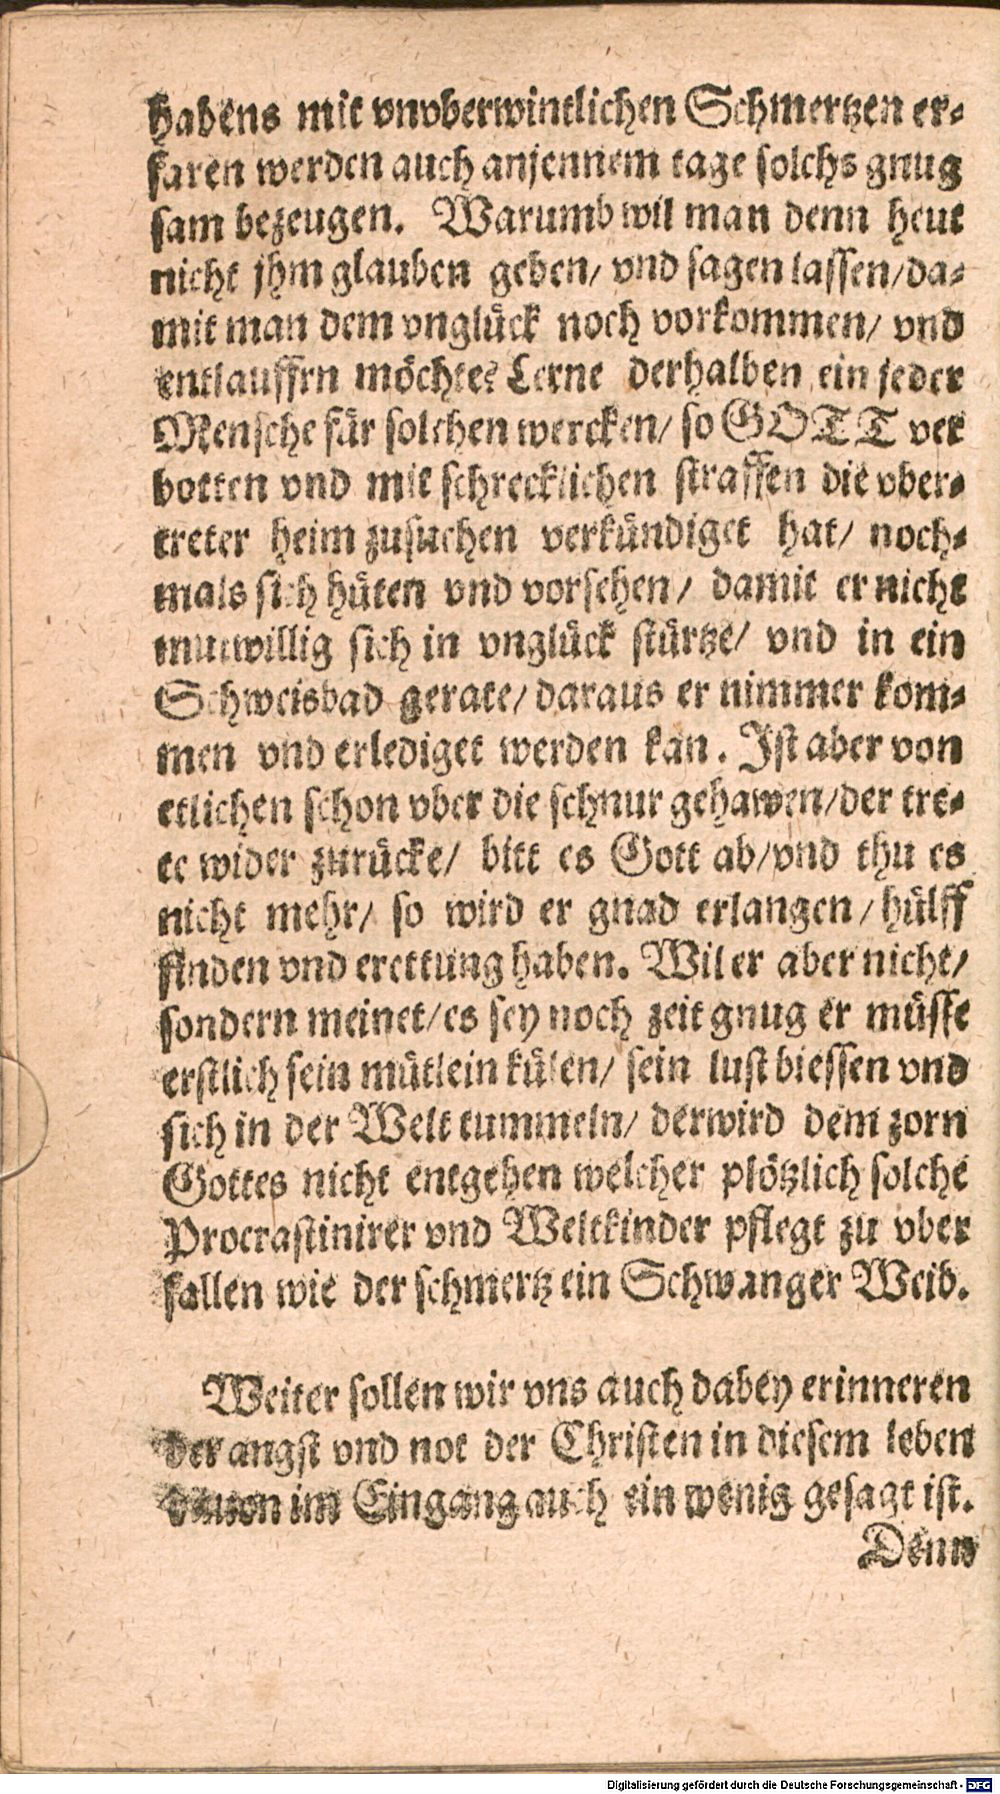 habens mit vnvberwintlichen Schmertzen er-
faren werden auch anjennem tage solchs gnug
sam bezeugen. Warumb wil man denn heut
nicht jhm glauben geben/ vnd sagen lassen/da-
mit man dem vnglück noch vorkommen/ vnd
entlauffen möchte? Lerne derhalben ein jeder
Mensche für solchen wercken/ so GOTT ver
botten vnd mit schrecklichen straffen die vber-
treter heim zusuchen verkündiget hat/ noch-
mals sich hüten vnd vorsehen/ damit er nicht
mutwillig sich in vnglück stürtze/ vnd in ein
Schweisbad gerate/ daraus er nimmer kom-
men vnd erlediget werden kan. Ist aber von
etlichen schon vber die schnur gehawen/der tre-
te wider zurücke/ bitt es Gott ab/vnd thu es
nicht mehr/ so wird er gnad erlangen/ hülff
finden vnd erettung haben. Wil er aber nicht/
sondern meinet/es sey noch zeit gnug er müsse
erstlich sein mütlein külen/ sein lust biessen vnd
sich in der Welt tummeln/ derwird dem zorn
Gottes nicht entgehen welcher plötzlich solche
Procrastinirer vnd Weltkinder pflegt zu vber
fallen wie der schmertz ein Schwanger Weib.
Weiter sollen wir vns auch dabey erinneren
der angst vnd not der Christen in diesem leben
dauon im Eingang auch ein wenig gesagt ist.
Denn
Digitalisierung gefördert durch die Deutsche Forschungsgemeinschaft - DFG